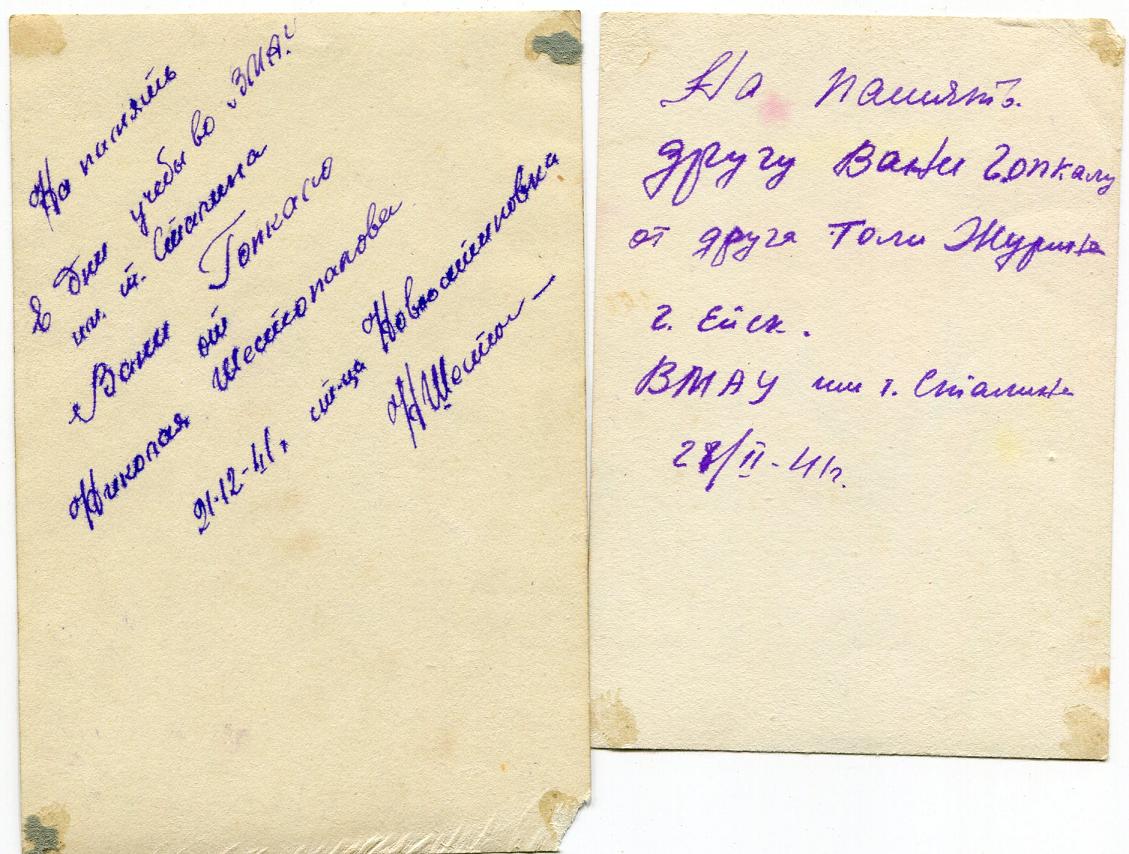 На память
в дни учебы во "ВМАУ
им. т. Сталина
Вани Гопкало
от
Николая Шестопалова
21-12-41г. ст-ца
НШестоп
На память.
другу Вани Гопкалу
от друга Толи
г. Ейск.
ВМАУ им т. Сталина
/II-41г.